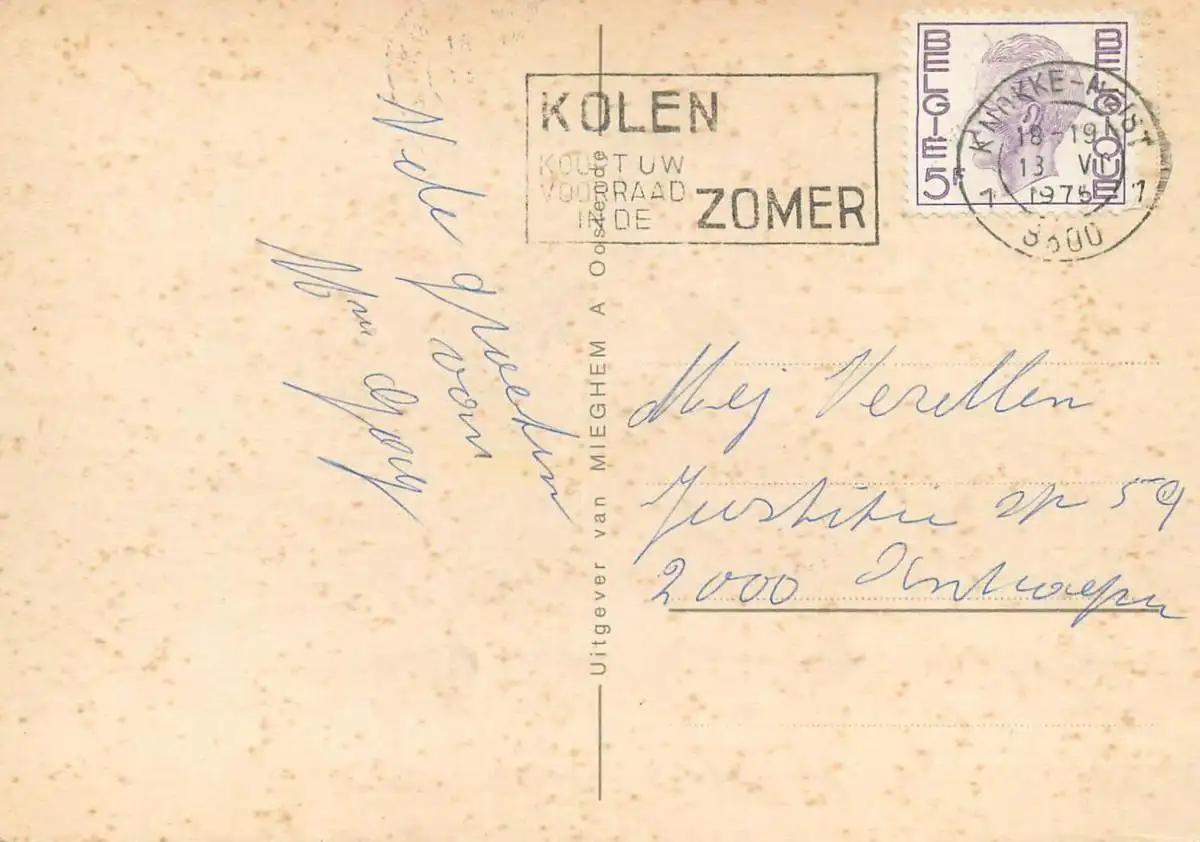 KOLEN
KOOPT UW
VOORRAAD
IN DE
ZOMER
BELGIE
BELGIQUE
5F
KNOKKE-HEIST
18-19
13 VI
1975
1 1
8300
Vele groeten
van
Mme
Uitgever van MIEGHEM A Oostende
Mej Verellen
Justitie str 59
2000 Antwerpen